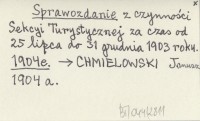 Sprawozdanie z czynności
Sekcyi Turystycznej za czas od
25 lipca do 31 grudnia 1903 roku.
1904e. → CHMIELOWSKI Janusz
1904 a.